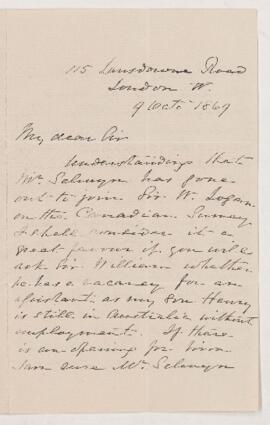 115 Lansdowne Road
London W.
9 Octr 1869
My dear Sir
Understanding that
Mr. Selwyn has gone
out to join Sir W. Logan
on the Canadian Survey
I shall consider it a
great favour if you will
ask Sir William whether
he has a vacancy for an
assistant as my son Henry
is still in Australia without
employment. If there
is an opening for him
I am sure Mr. Selwyn